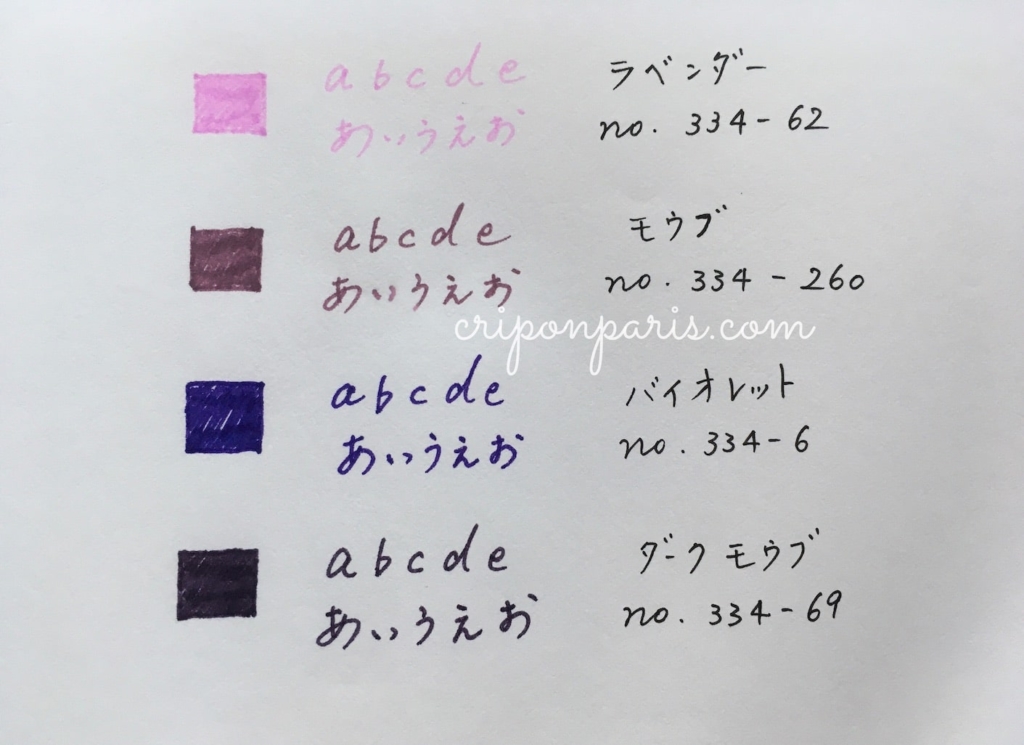 abcde
あいうえお
ラベンダー
no. 334-62
abcde
あいうえお
モウブ
no. 334-260
criponparis.com
abcde
あいうえお
バイオレット
no. 334-6
abcde
あいうえお
ダークモウブ
no. 334-69